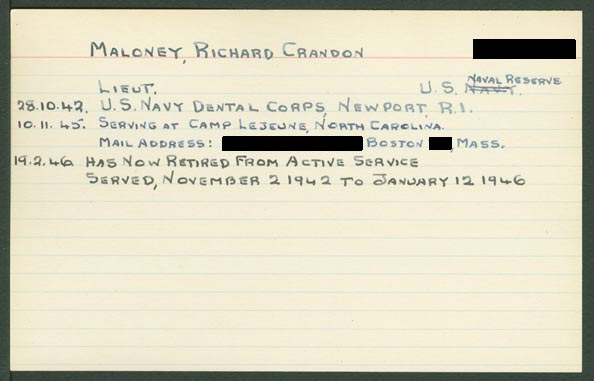 MALONEY, RICHARD CRANDON
NAVAL RESERVE
LIEUT. U.S. NAVY.
28.10.42. U.S. NAVY DENTAL CORPS, NEWPORT, R.I.
10.11.45. SERVING AT CAMP LEJEUNE, NORTH CAROLINA.
MAIL ADDRESS: BOSTON , MASS.
19.2.46 HAS NOW RETIRED FROM ACTIVE SERVICE
SERVED, NOVEMBER 2 1942 TO JANUARY 12 1946